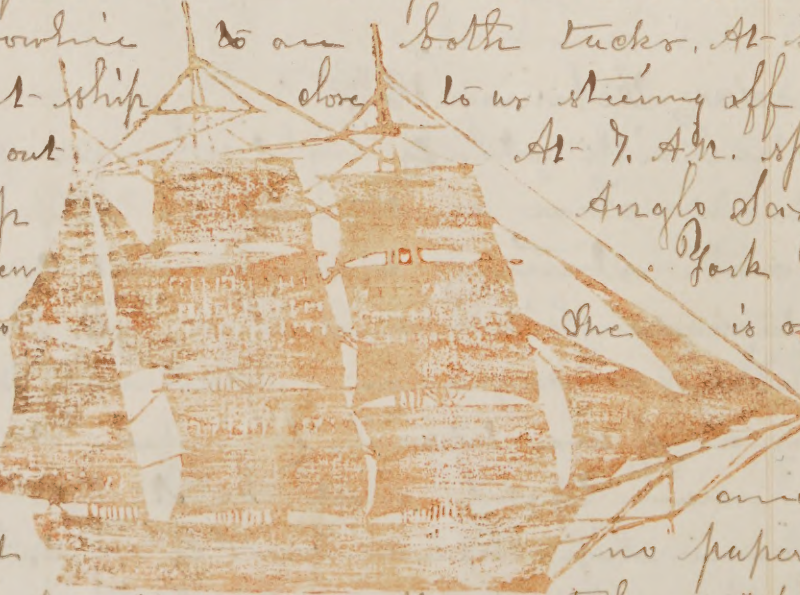 to an both tucks. At
t ship close to us steering off
out At 7. A.M. sp
Anglo Sax
York
She is o
and
no paper